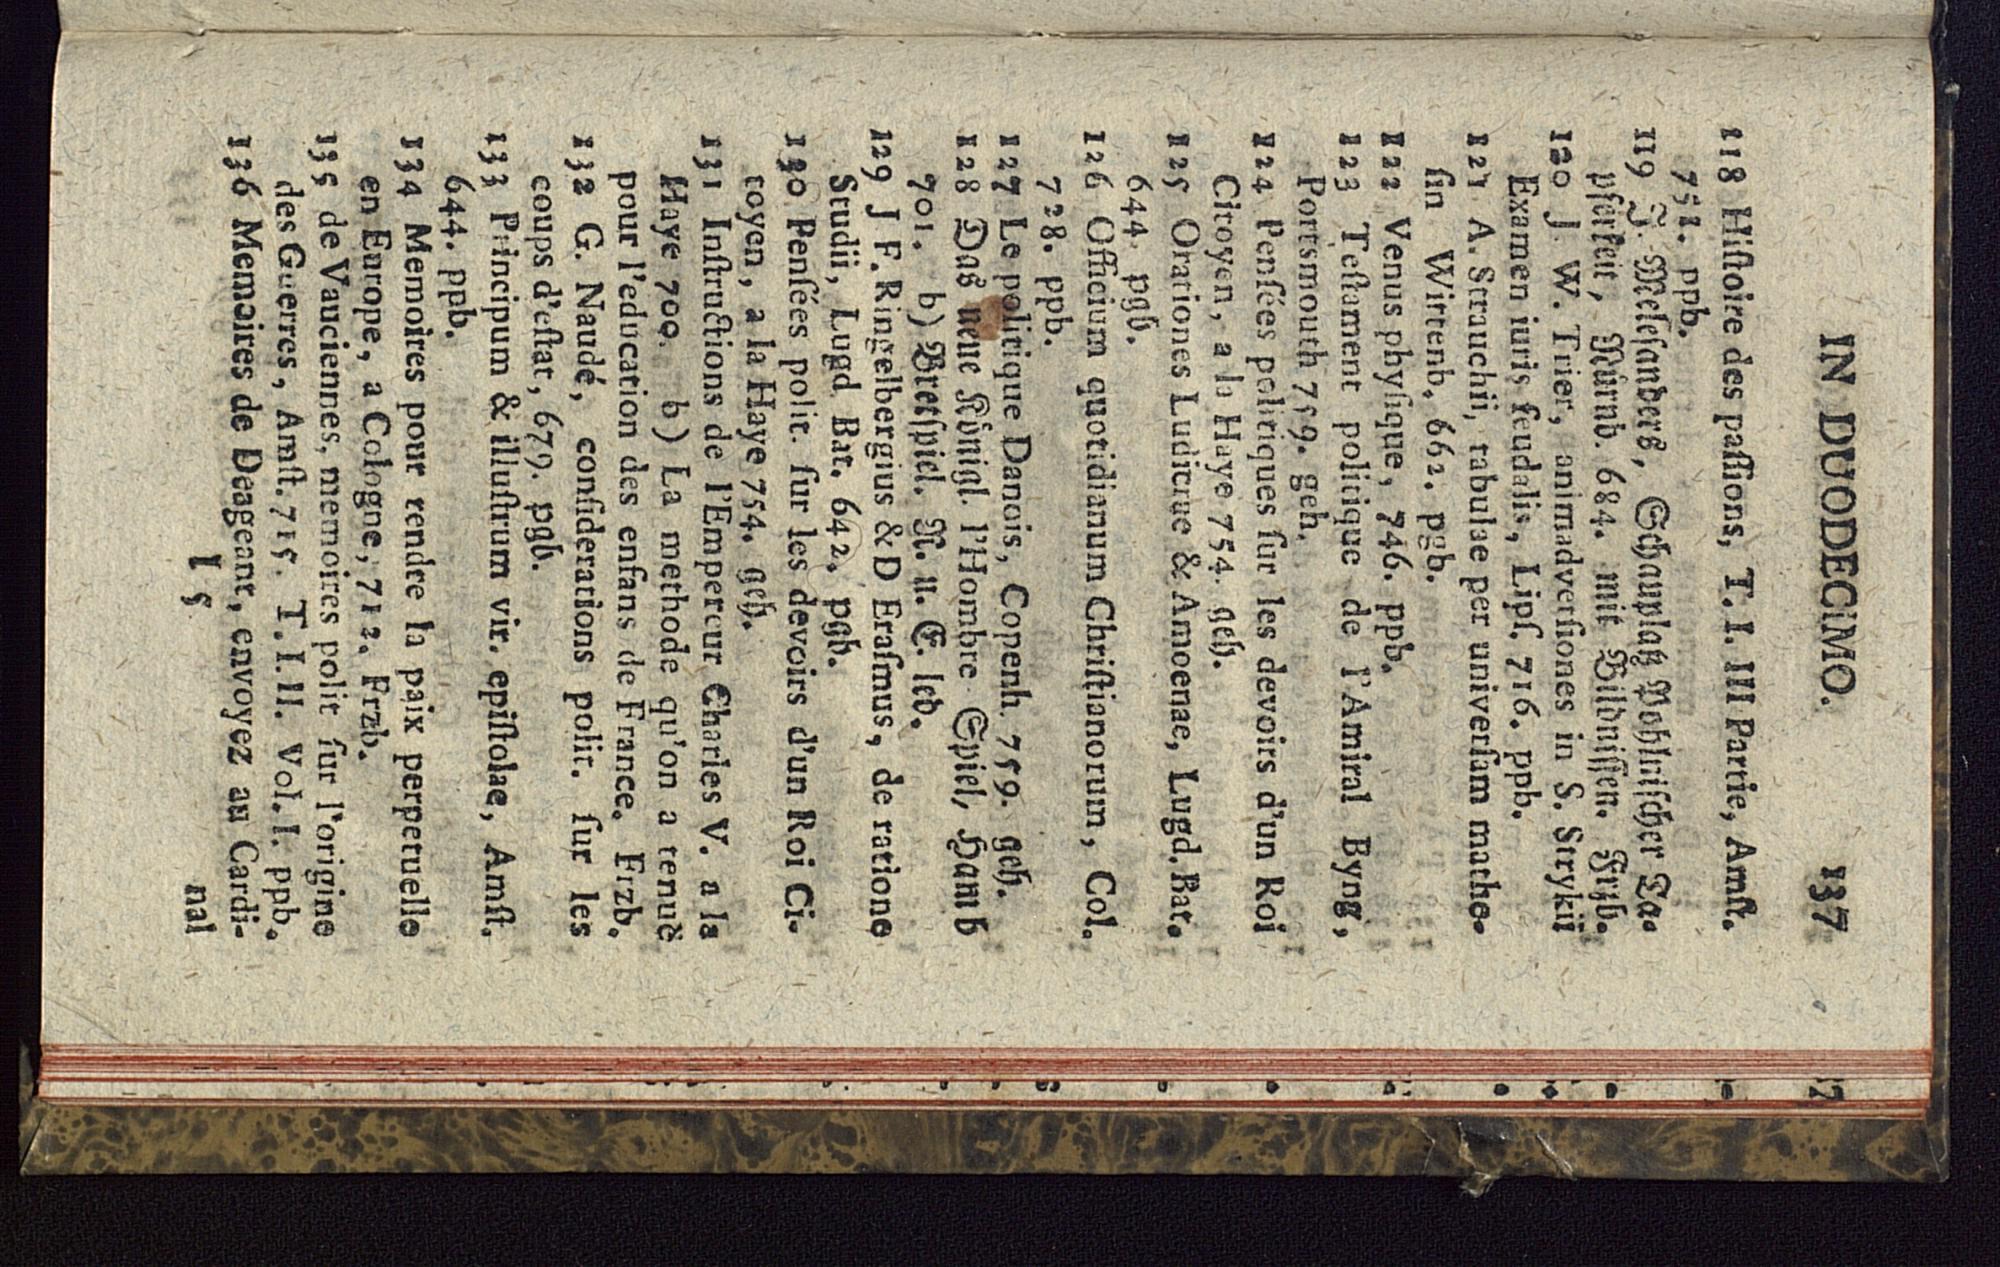 IN DUODECIMO. 137
118 Hiſtoire des paſſions, T. I. III Partie, Amſt.
752. ppb.
119 J. Meleſanders, Schauplatz Pohlniſcher Ta-
pferkeit, Nürnb. 684. mit Bildniſſen. Frzb.
120 J W. Trier, animadverſiones in S. Strykii
Examen iuris feudalis, Lipſ. 716. ppb.
121 A. Strauchii, tabulae per univerſam mathe-
ſin Wittenb. 662. pgb.
122 Venus phyſique, 746. ppb.
123 Teſtament politique de l'Amiral Byng,
Portsmouth 759. geh.
124 Penſées politiques ſur les devoirs d'un Roi
Citoyen, a la Haye 754. geh.
125 Orationes Ludicrae & Amoenae, Lugd. Bat.
644. pgb.
126 Officium quotidianum Chriſtianorum, Col.
728. ppb.
127 Le politique Danois, Copenh. 759. geh.
128 Das neue Königl. l'Hombre Spiel, Hamb
701. b) Bretſpiel. R. u. E. leb.
129 J F. Ringelbergius & D Eraſmus, de ratione
Studii, Lugd Bat. 642. pgb.
130 Penſées polit. ſur les devoirs d'un Roi Ci-
toyen, a la Haye 754. geh.
131 Inſtructions de l'Empereur Charles V. a la
Haye 700. b) La methode qu'on a tenuë
pour l'education des enfans de France. Frzb.
132 G. Naudé, conſiderations polit. ſur les
coups d'eſtat, 679. pgb.
133 Principum & illuſtrum vir. epiſtolae, Amſt.
644. ppb.
134 Memoires pour rendre la paix perpetuelle
en Europe, a Cologne, 712. Frzb.
135 de Vauciennes, memoires polit ſur l'origine
des Guerres, Amſt. 715. T. I. II. Vol. I. ppb.
136 Memoires de Deageant, envoyez au Cardi-
I 5 nal